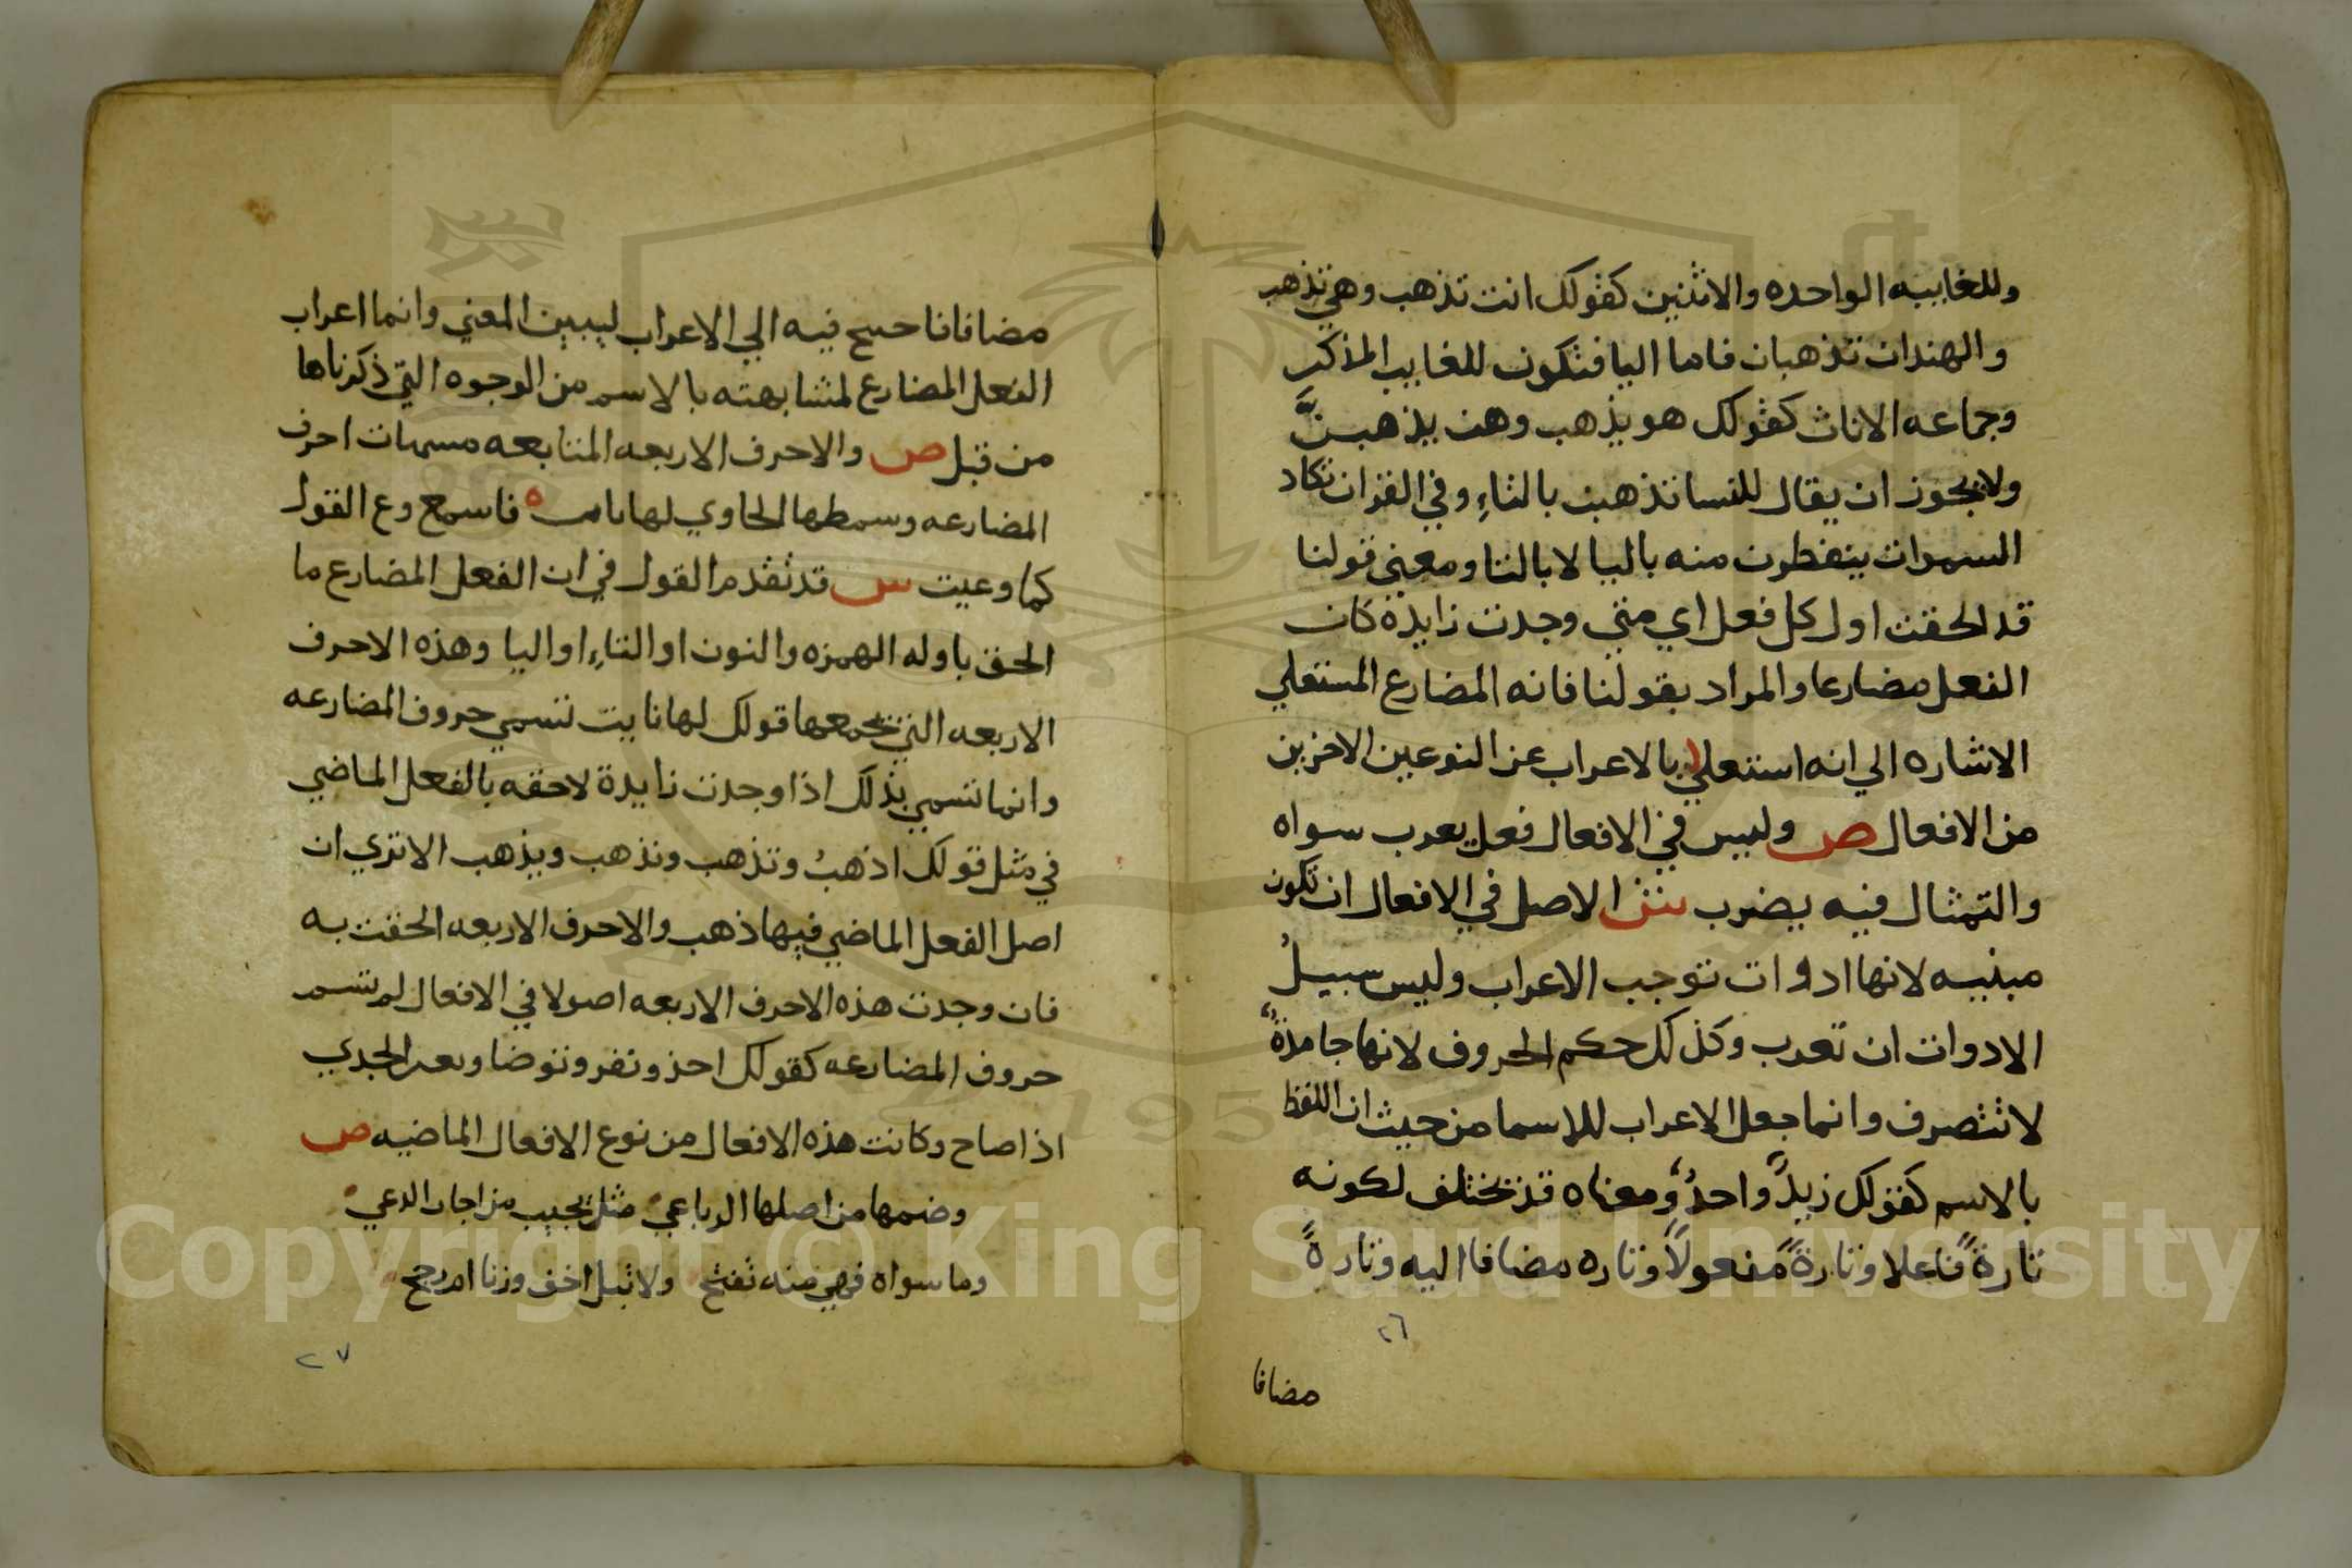 وللغايبه الواحده والاثنين كقولك انت تذهب وهي تذهب
والهندان تذهبان فاما اليا فتكون للغايب المذكر
وجماعه الاناث كقولك هو يذهب وهن يذهبن
ولا يجوز ان يقال للنسا تذهبن بالتاءِ وفي القران تكاد
السموات يتفطرن منه باليا لا بالتا ومعني قولنا
قد الحقت اول كل فعل اي متي وجدت زايدة كان
الفعل مضارعا والمراد بقولنا فانه المضارع المستعلي
الاشاره الي انه استعلي بالاعراب عن النوعين الاخرين
من الافعال ص وليس في الافعال فعل يعرب سواه
والتمثال فيه يضرب ش الاصل في الافعال ان تكون
مبنيه لانها ادوات توجب الاعراب وليس سبيلُ
الادوات ان تعرب وكذلك حكم الحروف لانها جامدةٌ
لا تتصرف وانما جعل الاعراب للاسما من حيث ان اللفظ
بالاسم كقولك زيدٌ واحدٌ ومعناه قد تختلف لكونه
تارةً فاعلا وتارةً مفعولاً وتاره مضافا اليه وتارةً
٢٦
مضافا
مضافا فاحتيج فيه الي الاعراب ليبين المعني وانما اعراب
الفعل المضارع لمشابهته بالاسم من الوجوه التي ذكرناها
من قبل ص والاحرف الاربعه المتابعه مسمات احرف
المضارعه وسمطها الحاوي لها نايت ه فاسمع وع القول
كما وعيت ش قد تقدم القول في ان الفعل المضارع ما
الحق باوله الهمزه والنون او التاءِ او اليا وهذه الاحرف
الاربعه التي تجمعها قولك لها نايت تسمي حروف المضارعه
وانما تسمي بذلك اذا وجدت زايدة لاحقه بالفعل الماضي
في مثل قولك اذهبُ وتذهب ونذهب ويذهب الا تري ان
اصل الفعل الماضي فيها ذهب والاحرف الاربعه الحقت به
فان وجدت هذه الاحرف الاربعه اصولا في الافعال لم تسم
حروف المضارعه كقولك اخذ ونفر وتوضا ويعر الجدي
اذا صاح وكانت هذه الافعال من نوع الافعال الماضيه ص
وضمها من اصلها الرباعي مثل يجيب من اجاب الدعي
وما سواه فهي منه تفتح ولا تبل اخف وزنا ام رجح
٢٧
Copyright © King Saud University
195